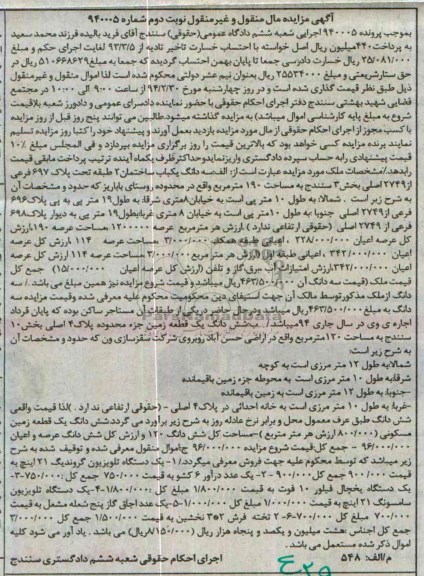 آگهی مزایده مال منقول و غیرمنقول نوبت دوم شماره ۹۴۰۰۰۵
بموجب پرونده ۹۴۰۰۰۵ اجرایی شعبه ششم دادگاه عمومی(حقوقی) سنندج آقای فرید بالیده فرزند محمد سعید
به پرداخت ۴۴۰میلیون ریال اصل خواسته با احتساب خسارت تاخیر تادیه از ۹۳/۳/۵ لغایت اجرای حکم و مبلغ
۲۵/۰۸۱/۰۰۰ ریال خسارت دادرسی جمعا تا پایان بهمن احتساب گردیده که جمعا به مبلغ ۵۱۰۶۶۸۶۲۹ ریال در
حق ستار شریعتی و مبلغ ۲۵۵۳۴۰۰۰ ریال بعنوان نیم عشر دولتی محکوم شده است لذا اموال منقول و غیرمنقول
ذیل طبق نظر قیمت گذاری شده است و در روز چهارشنبه مورخ ۹۴/۲/۳۰ از ساعت ۹:۰۰ الی ۱۰:۰۰ در مجتمع
قضایی شهید بهشتی سنندج دفتر اجرای احکام حقوقی با حضور نماینده دادسرای عمومی و دادورز شعبه بلاقیمت
شروع به مبلغ پایه کارشناسی اموال میباشد) به مزایده گذاشته میشود.طالبین می توانند پنج روز قبل از روز مزایده
با کسب مجوز از اجرای احکام حقوقی از مال مورد مزایده بازدید بعمل آورند و پیشنهاد خود را کتبا روز مزایده تسلیم
نمایند برنده مزایده کسی خواهد بود که بالاترین قیمت را روز برگزاری مزایده بپردازد و فی المجلس مبلغ ۱۰٪
قیمت پیشنهادی رابه حساب سپرده دادگستری واریز نماید و حداکثر ظرف یکماه آینده ترتیب پرداخت مابقی قیمت
رابدهد.مشخصات ملک مورد مزایده عبارت است از: الف-سه دانگ یکباب ساختمان ۲ طبقه تحت پلاک ۶۹۷ فرعی
از ۲۷۴۹ اصلی بخش ۳ سنندج به مساحت ۱۹۰ مترمربع واقع در محدوده روستای باباریز که حدود و مشخصات آن
به شرح زیر است . شمالا: به طول ۱۰ متر پی است به خیابان ۸متری شرقا: به طول ۱۹ متر پی به پی پلاک ۶۹۶
فرعی از ۲۷۴۹ اصلی جنوبا به طول ۱۰متر پی است به خیابان ۸ متری غربا بطول ۱۹ متر پی به دیوار پلاک ۶۹۸
فرعی از ۲۷۴۹ اصلی (حقوق ارتفاعی ندارد ) ارزش هر مترمربع عرصه ۱۲۰۰۰۰۰ مساحت عرصه ۱۹۰ ارزش
کل عرصه اعیان ۲۲۸/۰۰۰/۰۰۰ ، اعیانی طبقه همکف ۳/۰۰۰/۰۰۰ مساحت عرصه ۱۱۴ ارزش کل عرصه
اعیان ۳۴۲/۰۰۰/۰۰۰ ، اعیانی طبقه اول (ارزش هر متر مربع ۳/۰۰۰/۰۰۰ مساحت عرصه ۱۱۴ ارزش کل عرصه
اعیان ۳۴۲/۰۰۰/۰۰۰ ارزش امتیازات آب ،برق،گاز و تلفن (ارزش کل عرصه اعیان ۱۵/۰۰۰/۰۰۰) جمع کل
قیمت ملک (قیمت سه دانگ آن ۴۶۳/۵۰۰/۰۰۰ ریال میباشد و قیمت شروع مزایده نیز همین مبلغ می باشد . / سه
دانگ از ملک مذکور توسط مالک آن جهت استیفای دین محکومیت محکوم علیه معرفی شده وقیمت مزایده سه
دانگ به مبلغ ۴۶۳/۵۰۰/۰۰۰ ریال میباشد ودرحال حاضر در یکی از طبقات آن مستاجر ساکن بوده که پایان قرداد
اجاره ی وی در سال جاری ۹۴ میباشد/ . ب-شش دانگ یک قطعه زمین جزء محدوده پلاک ۴ اصلی بخش ۱۰
سنندج به مساحت ۱۲۰مترمربع واقع در اراضی حسن آباد روبروی شرکت سقزسازی ون که حدود و مشخصات آن
به شرح زیر است:
شمالا:به طول ۱۲ متر مرزی است به کوچه
شرقا:به طول ۱۰ متر مرزی است به محوطه جزء زمین باقیمانده
-جنوبا: به طول ۱۲ متر مرزی است به زمین باقیمانده
-غربا: به طول ۱۰ متر مرزی است به خانه احداثی در پلاک ۴ اصلی - (حقوقی ارتفاعی ندارد . )لذا قیمت واقعی
شش دانگ طبق عرف معمول محل و برابر نرخ عادله روز به شرح زیر برآورد می گردد.شش دانگ یک قطعه زمین
مسکونی (۸۰۰/۰۰۰ ارزش هر متر مربع )-مساحت کل شش دانگ ۱۲۰ و ارزش کل شش دانگ عرصه و اعیان
۹۶/۰۰۰/۰۰۰ - جمع کل:قیمت شروع مزایده ۹۶/۰۰۰/۰۰۰ ج)اموال منقول معرفی شده و توقیف شده به شرح
زیر میباشد که توسط محکوم علیه جهت فروش معرفی میگردد:۱- یک دستگاه تلویزیون گروندیگ ۲۱ اینچ به
قیمت ۹۰۰/۰۰۰ جمع کل:۹۰۰/۰۰۰ -۲- یک عدد دراور ۶ کشو به قیمت ۷۵۰/۰۰۰ جمع کل :۷۵۰/۰۰۰ -۳-
یک دستگاه یخچال فیلور ۱۰ فوت به قیمت ۱/۸۰۰/۰۰۰ مبلغ کل ۱/۸۰۰/۰۰۰-۴- یک دستگاه تلویزیون
سامسونگ ۲۱ اینچ به قیمت ۱/۰۰۰/۰۰۰ مبلغ کل ۱/۰۰۰/۰۰۰-۵- یک عدد اجاق گاز پنج شعله مشعل به قیمت
۷۰۰/۰۰۰ مبلغ کل ۷۰۰/۰۰۰-۶- ۲ تخته فرش ۲*۳ نخشین به قیمت ۱/۵۰۰/۰۰۰ جمع کل ۳/۰۰۰/۰۰۰
جمع کل اجناس :هشت میلیون و یکصد و پنجاه هزار ریال (۸/۱۵۰/۰۰۰) ریال می باشد . یاد آور می شود کلیه
اموال ذکر شده مستعمل می باشد .
م الف: ۵۴۸ اجرای احکام حقوقی شعبه ششم دادگستری سنندج